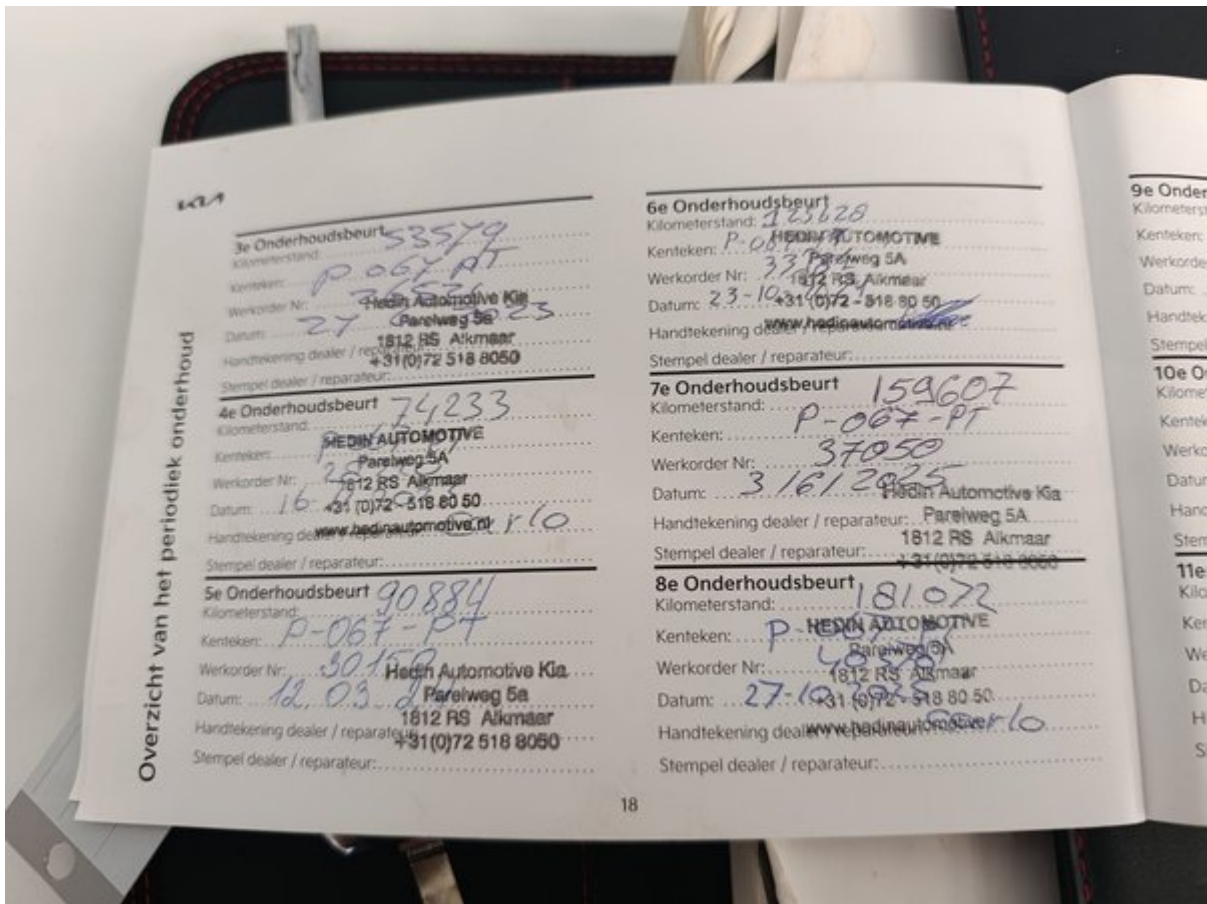 KIA
Overzicht van het periodiek onderhoud
3e Onderhoudsbeurt
Kilometerstand: 53579
Kenteken: P 067 PT
Werkorder Nr:
Datum: 27
Handtekening dealer / reparateur:
Stempel dealer / reparateur:
Hedin Automotive Kia
Parelweg 5a
1812 RS Alkmaar
+31(0)72 518 8050
4e Onderhoudsbeurt
Kilometerstand: 74233
Kenteken:
Werkorder Nr:
Datum: 16
Handtekening dealer / reparateur:
Stempel dealer / reparateur:
HEDIN AUTOMOTIVE
Parelweg 5A
1812 RS Alkmaar
+31 (0)72 - 518 80 50
www.hedinautomotive.nl
5e Onderhoudsbeurt
Kilometerstand: 90884
Kenteken: P-067-PT
Werkorder Nr: 30150
Datum: 12.03.
Handtekening dealer / reparateur:
Stempel dealer / reparateur:
Hedin Automotive Kia
Parelweg 5a
1812 RS Alkmaar
+31(0)72 518 8050
6e Onderhoudsbeurt
Kilometerstand: 123628
Kenteken:
Werkorder Nr:
Datum: 23-10-
Handtekening dealer / reparateur:
Stempel dealer / reparateur:
HEDIN AUTOMOTIVE
Parelweg 5A
1812 RS Alkmaar
+31 (0)72 - 518 80 50
www.hedinautomotive.nl
7e Onderhoudsbeurt
Kilometerstand: 159607
Kenteken: P-067-PT
Werkorder Nr: 37050
Datum: 3/6/2025
Handtekening dealer / reparateur:
Stempel dealer / reparateur:
Hedin Automotive Kia
Parelweg 5A
1812 RS Alkmaar
+31(0)72 518 8050
8e Onderhoudsbeurt
Kilometerstand: 181072
Kenteken:
Werkorder Nr:
Datum: 27-10-2025
Handtekening dealer / reparateur: Carlo
Stempel dealer / reparateur:
HEDIN AUTOMOTIVE
Parelweg 5A
1812 RS Alkmaar
+31 (0)72 - 518 80 50
www.hedinautomotive.nl
18
9e Onder
Kilometerst
Kenteken:
Werkorde
Datum:
Handtek
Stempel
10e O
Kilome
Kentek
Werko
Datum
Hand
Stem
11e
Kilo
Ken
We
Da
H
S